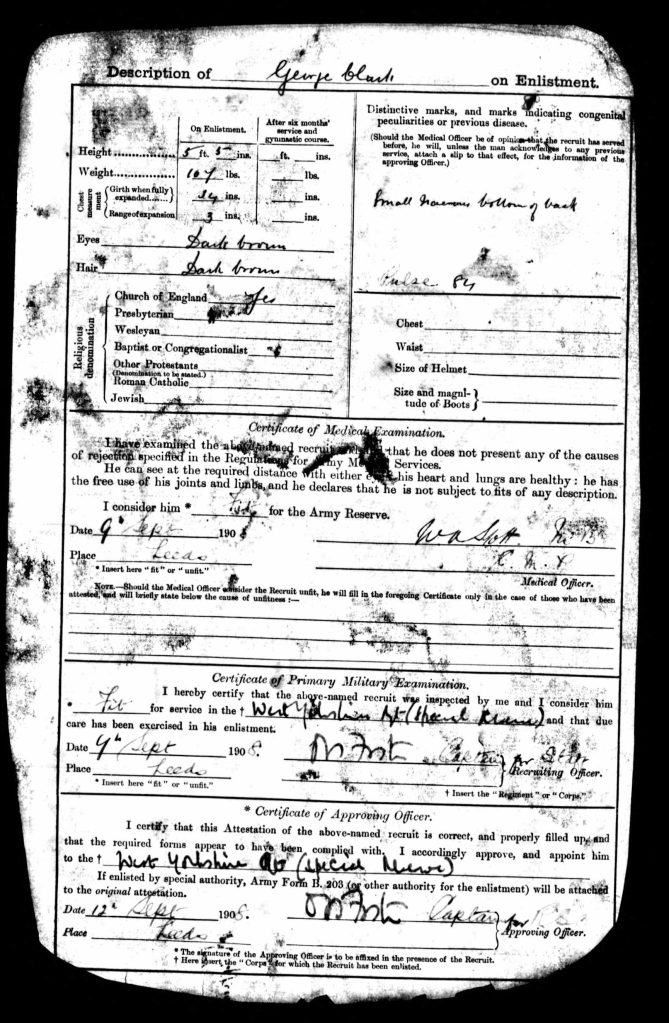 Description of George Clark on Enlistment.
On Enlistment.
After six months' service and gymnastic course.
Height 5 ft. 5 ins. ft. ins.
Weight 107 lbs. lbs.
Chest measurement
Girth when fully expanded 34 ins. ins.
Range of expansion 3 ins. ins.
Eyes Dark brown
Hair Dark brown
Religious denomination
Church of England Yes
Presbyterian
Wesleyan
Baptist or Congregationalist
Other Protestants
(Denomination to be stated.)
Roman Catholic
Jewish
Distinctive marks, and marks indicating congenital
peculiarities or previous disease.
(Should the Medical Officer be of opinion that the recruit has served
before, he will, unless the man acknowledges to any previous
service, attach a slip to that effect, for the information of the
approving Officer.)
Small bottom of back
Pulse 84
Chest
Waist
Size of Helmet
Size and magni-
tude of Boots
Certificate of Medical Examination.
I have examined the above-named recruit and that he does not present any of the causes
of rejection specified in the Regulations for Army Medical Services.
He can see at the required distance with either eye; his heart and lungs are healthy: he has
the free use of his joints and limbs, and he declares that he is not subject to fits of any description.
I consider him * for the Army Reserve.
Date 9th Sept 1908
Place Leeds
* Insert here "fit" or "unfit."
Medical Officer.
NOTE.—Should the Medical Officer consider the Recruit unfit, he will fill in the foregoing Certificate only in the case of those who have been
attested, and will briefly state below the cause of unfitness:—
Certificate of Primary Military Examination.
I hereby certify that the above-named recruit was inspected by me and I consider him
* Fit for service in the † West Yorkshire Rgt (Special Reserve) and that due
care has been exercised in his enlistment.
Date 9th Sept 1908. Captain for
Place Leeds Recruiting Officer.
* Insert here "fit" or "unfit."
† Insert the "Regiment" or "Corps."
* Certificate of Approving Officer.
I certify that this Attestation of the above-named recruit is correct, and properly filled up, and
that the required forms appear to have been complied with. I accordingly approve, and appoint him
to the † West Yorkshire Rgt (Special Reserve)
If enlisted by special authority, Army Form B. 203 (or other authority for the enlistment) will be attached
to the original attestation.
Date 12th Sept 1908. Captain for
Place Leeds Approving Officer.
* The signature of the Approving Officer is to be affixed in the presence of the Recruit.
† Here insert the "Corps" for which the Recruit has been enlisted.